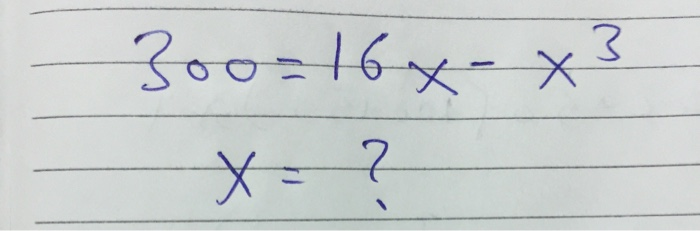 300=16x-x³
x=?